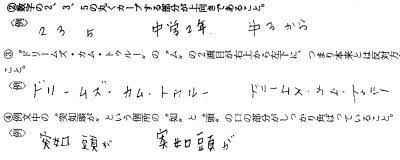 ②数字の2、3、5の丸くカーブする部分が上向きであること。
〈例〉 2 3 5 中学2年 牛3から
③“ドリームズ・カム・トゥルー”の“ム”の2画目が右上から左下に、つまり本来とは反対方
こと。
〈例〉 ドリームズ・カム・トゥルー ドリームズ・カム・トゥルー
④例文中の“突如頭が”という箇所の“如”と“頭”の口の部分がしっかり角ばっていること。
〈例〉 突如頭が 突如頭が